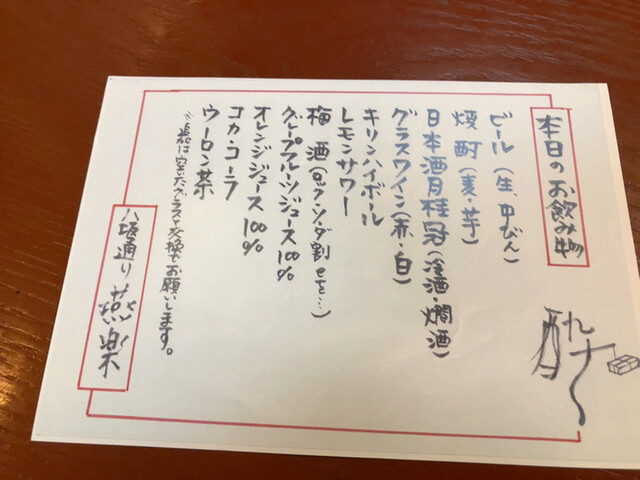 本日のお飲み物
酔
ビール(生、中びん)
焼酎(麦・芋)
日本酒月桂冠(冷酒・燗酒)
グラスワイン(赤・白)
キリンハイボール
レモンサワー
梅酒(ロック・ソーダ割 etc…)
グレープフルーツジュース100%
オレンジジュース100%
コカ・コーラ
ウーロン茶
※追加は空いたグラスと交換でお願いします。
八坂通り 燕楽